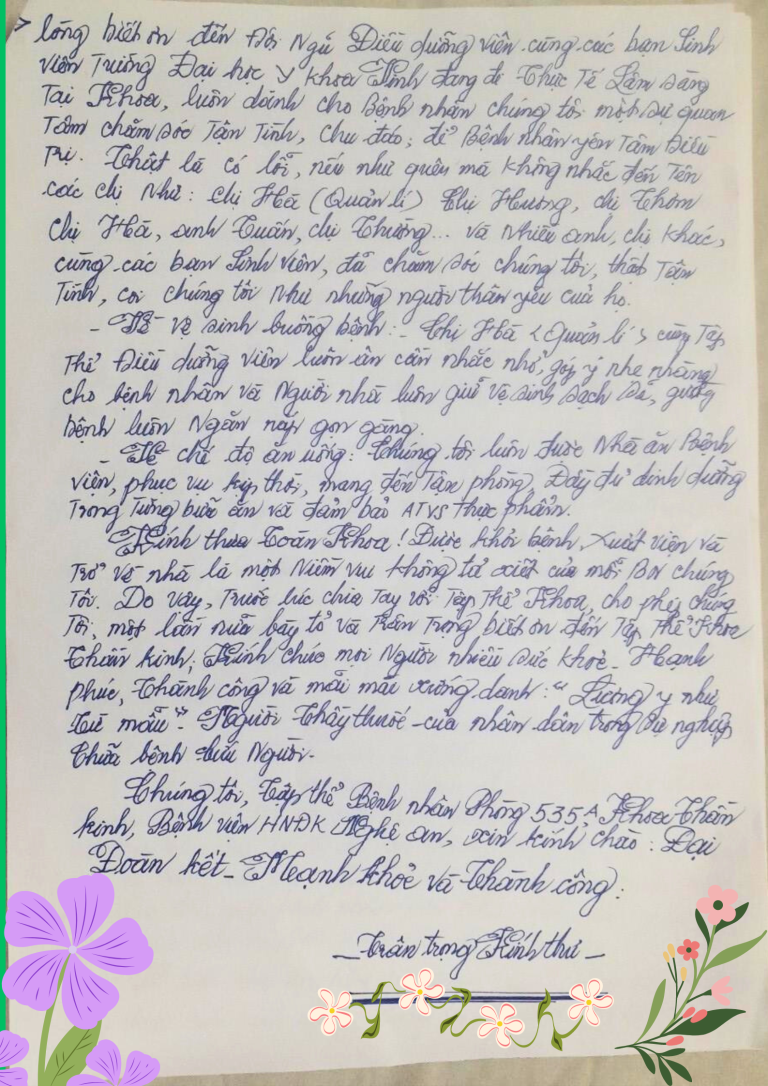 lòng biết ơn đến Đội Ngũ Điều dưỡng viên cùng các bạn Sinh
viên Trường Đại học Y khoa Vinh đang đi Thực Tế Lâm sàng
Tại Khoa, luôn dành cho Bệnh nhân chúng tôi một sự quan
Tâm chăm sóc Tận Tình, chu đáo; để Bệnh nhân yên Tâm Điều
Trị. Thật là có lỗi, nếu như quên mà không nhắc đến Tên
các chị như: chị Hà (Quản lí) Chị Hương, chị Thơm
Chị Hà, anh Tuấn, chị Thường... và nhiều anh, chị khác,
cùng các bạn Sinh viên, đã chăm sóc chúng tôi, thật Tâm
Tình, coi chúng tôi như những người thân yêu của họ.
- Về vệ sinh buồng bệnh: - Chị Hà <Quản lí> cùng Tập
Thể Điều dưỡng viên luôn ân cần nhắc nhở, góp ý nhẹ nhàng
cho bệnh nhân và Người nhà luôn giữ vệ sinh sạch sẽ, giường
Bệnh luôn Ngăn nắp gọn gàng.
- Về chế độ ăn uống: Chúng tôi luôn được Nhà ăn Bệnh
viện, phục vụ kịp thời, mang đến Tận phòng, Đầy đủ dinh dưỡng
Trong Từng bữa ăn và đảm bảo ATVS thực phẩm.
Kính thưa Toàn Khoa! Được khỏi bệnh, xuất viện và
Trở về nhà là một Niềm vui không tả xiết của mỗi BN chúng
Tôi. Do vậy, Trước lúc chia Tay với Tập Thể Khoa, cho phép chúng
Tôi, một lần nữa bày tỏ và Trân Trọng biết ơn đến Tập Thể Khoa
Thần kinh; Kính chúc mọi Người nhiều sức khoẻ - Hạnh
phúc, Thành công và mãi mãi xứng danh: "Lương y như
Từ mẫu" - Người Thầy thuốc của nhân dân trong sự nghiệp
Chữa bệnh cứu Người.
Chúng tôi, Tập thể Bệnh nhân Phòng 535A Khoa Thần
kinh, Bệnh viện HNĐK Nghệ an, xin kính chào: Đại
Đoàn kết - Mạnh khoẻ và Thành công:
- Trân trọng Kính thư -